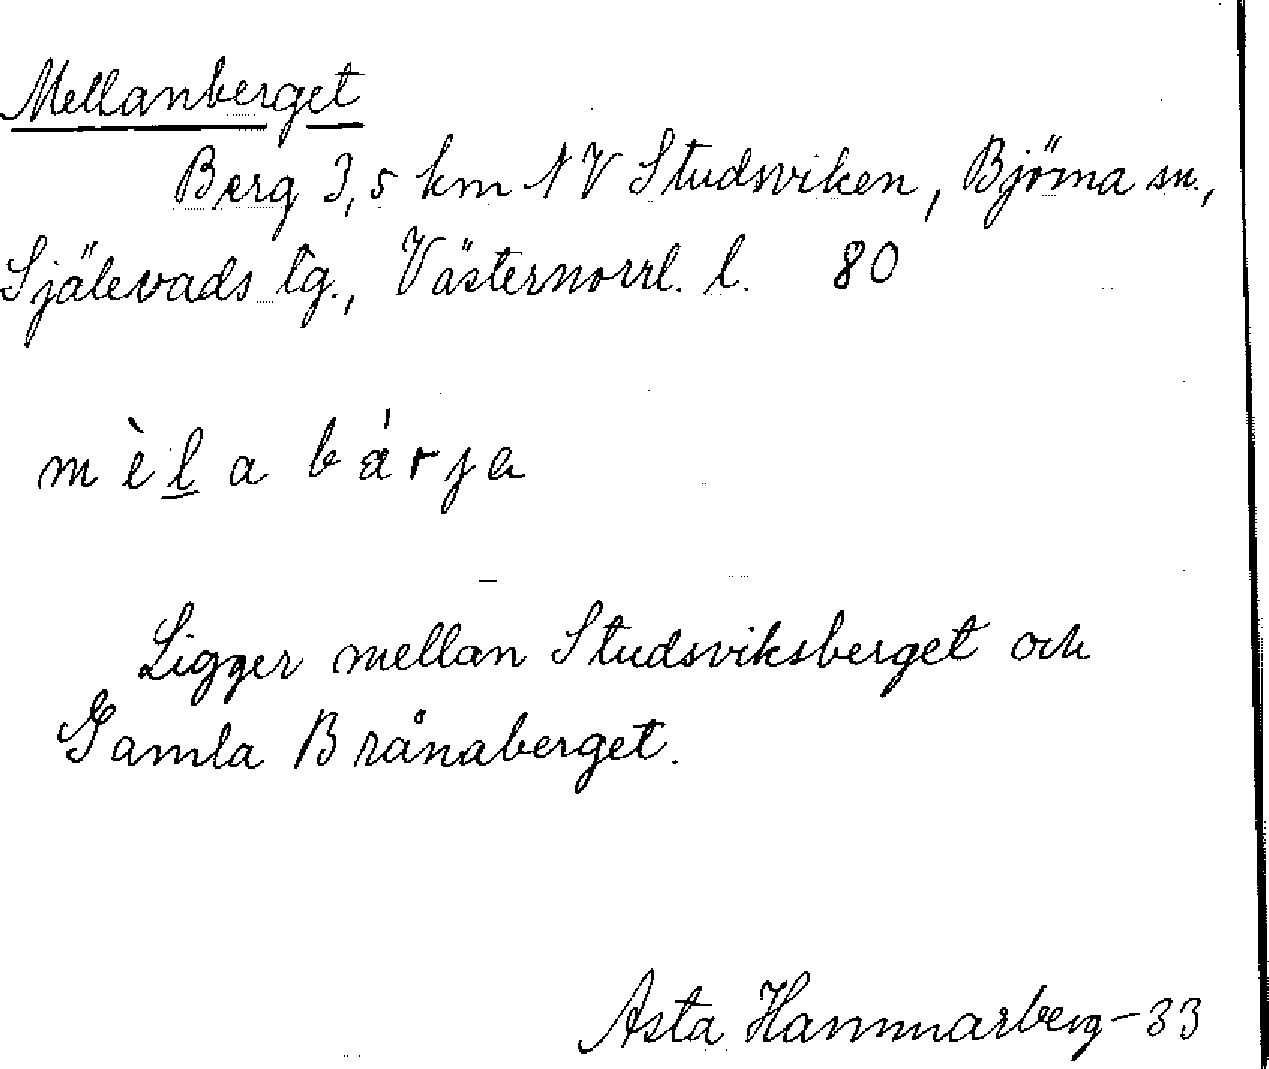 Mellanberget
Berg 3,5 km NV Studsviken, Björna sn.,
Själevads tg., Västernorrl. l. 80
m è l a b á r j a
Ligger mellan Studsviksberget och
Gamla Brånaberget.
Asta Hammarberg -33